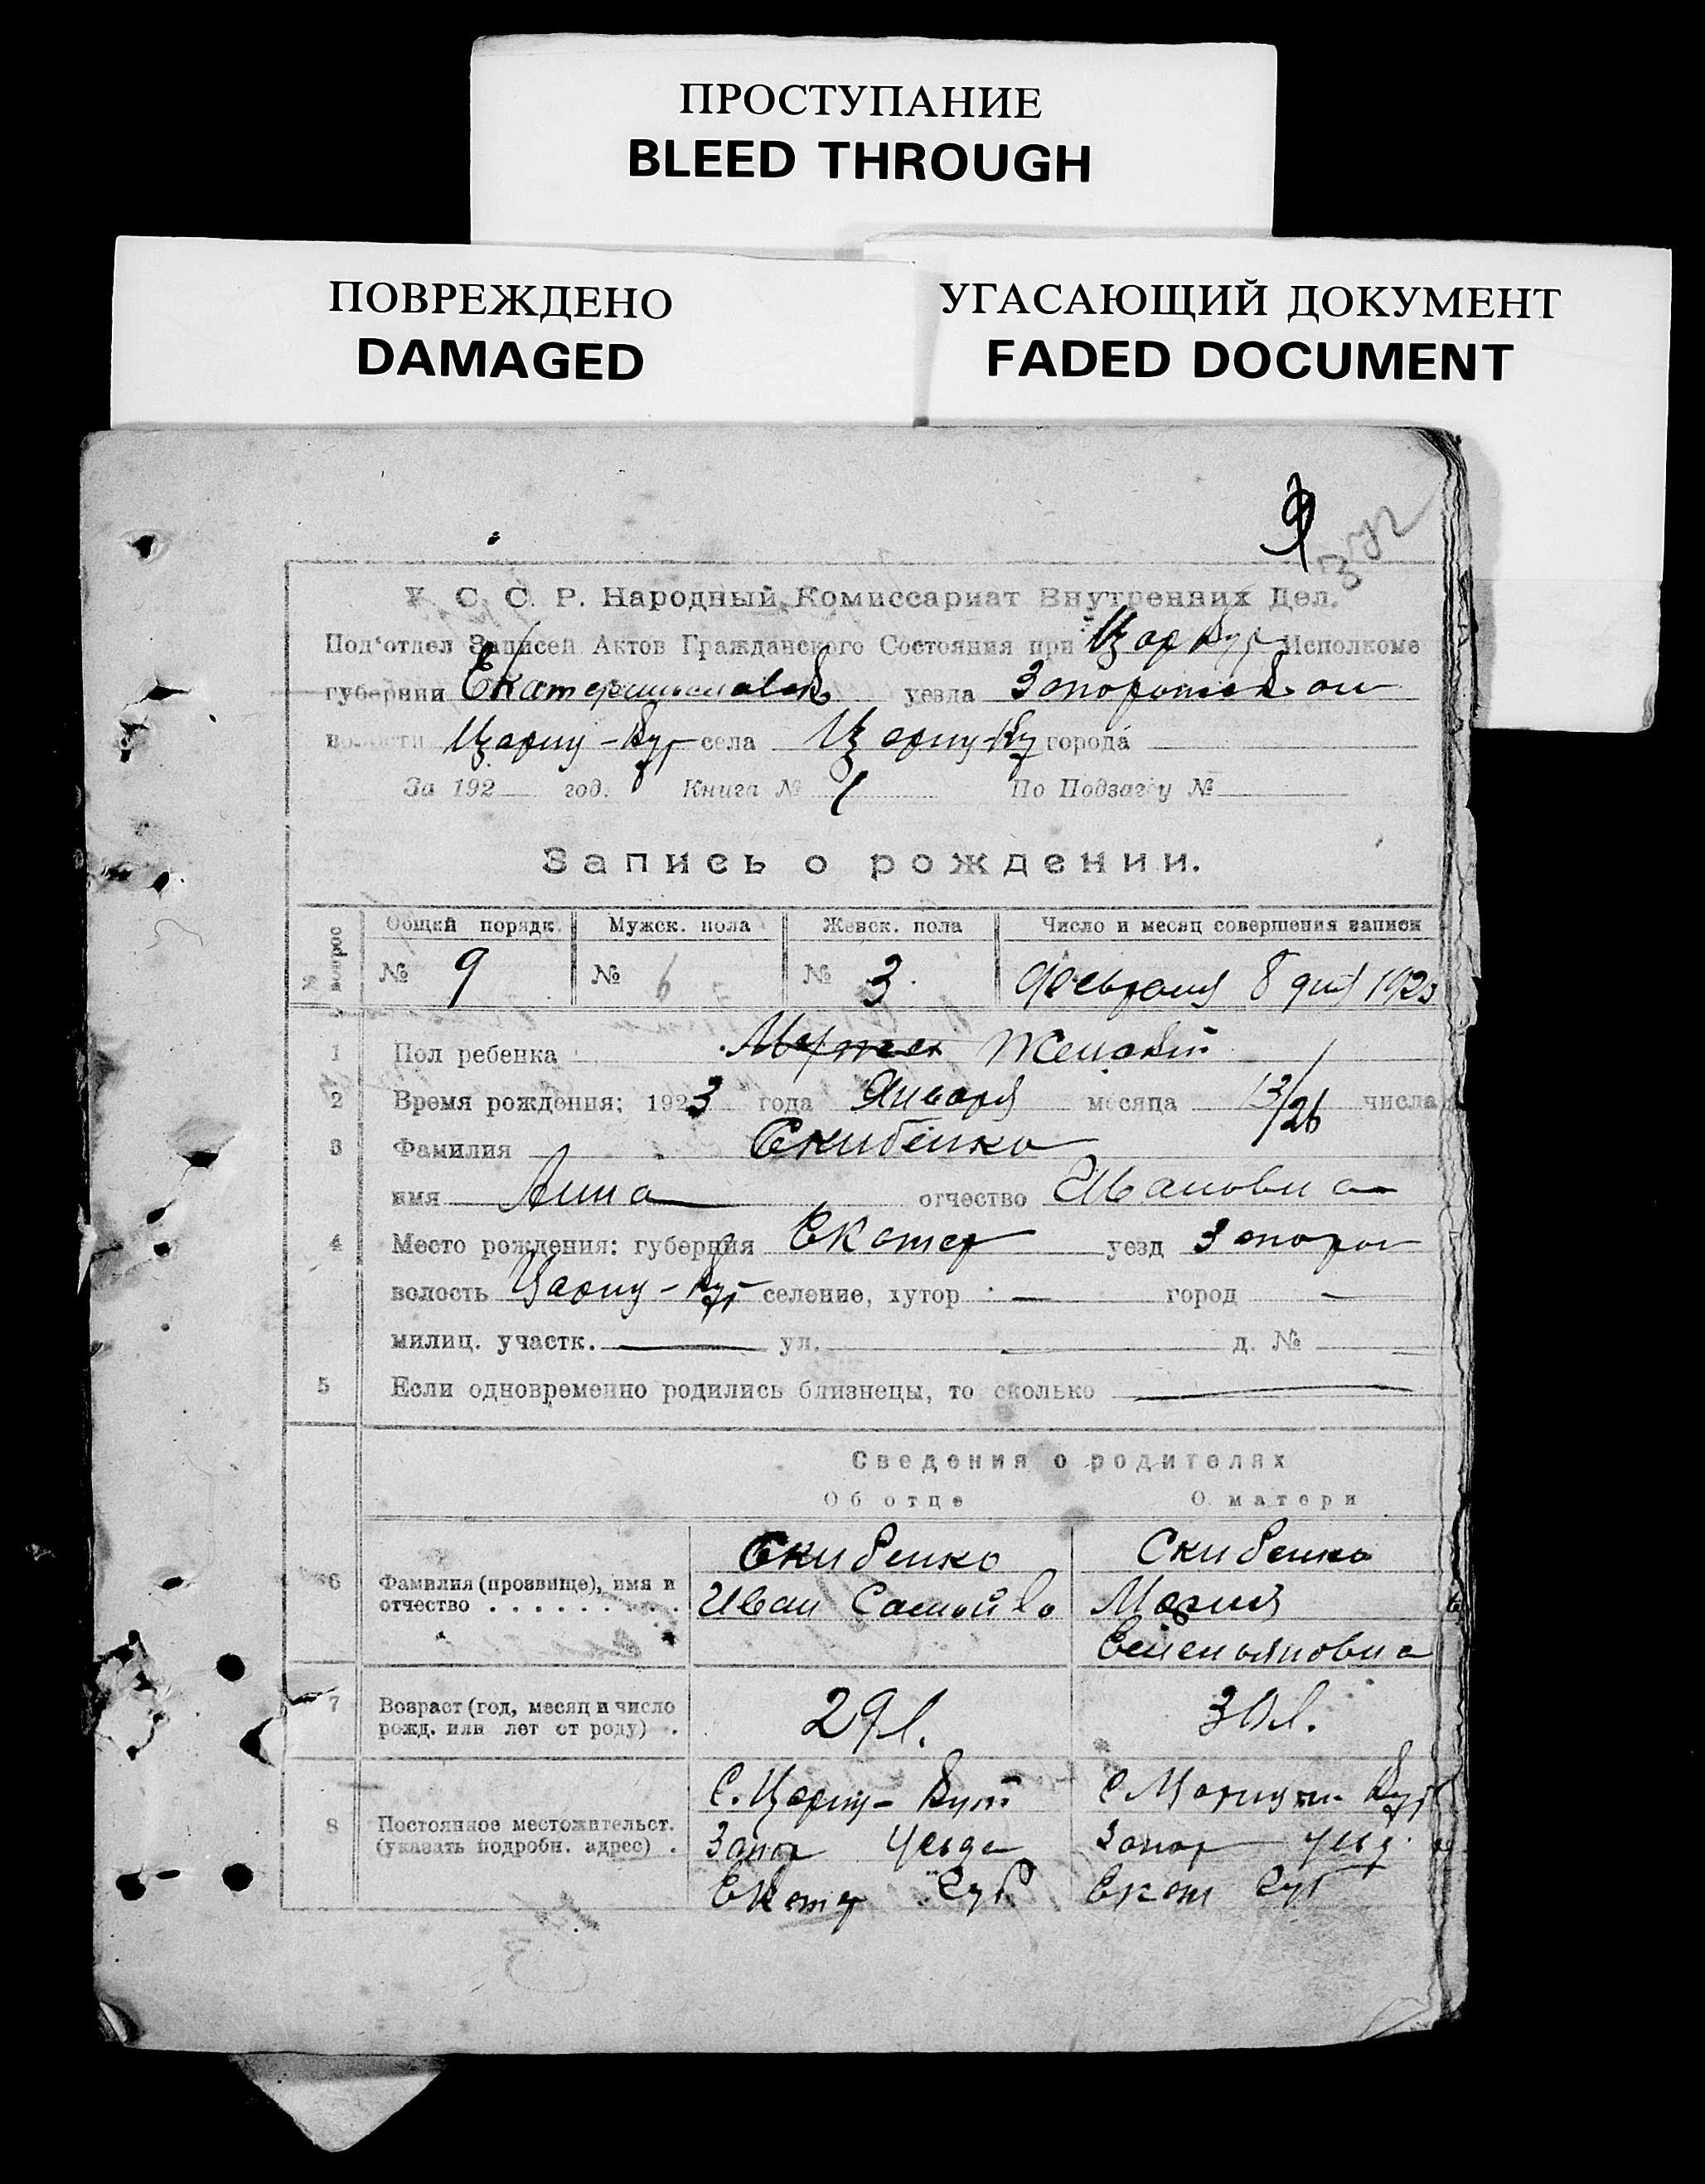 ПРОСТУПАНИЕ
BLEED THROUGH
ПОВРЕЖДЕНО
DAMAGED
УГАСАЮЩИЙ ДОКУМЕНТ
FADED DOCUMENT
9
372
У. С. С. Р. Народный Комиссариат Внутренних Дел.
Под'отдел Записей Актов Гражданского Состояния при Цар Кут Исполкоме
губернии Екатеринославск уезда Запорожском
волости Цариц-Кут села Цариц-Кут города
За 192 год. Книга № 1 По Подзагсу №
Запись о рождении.
№ вопрос Общий порядк. Мужск. пола Женск. пола Число и месяц совершения записи
№ 9 № № 3 Февраля 8 дня 1923
1 Пол ребенка Мужск Женский
2 Время рождения: 1923 года Января месяца 13/26 числа
3 Фамилия Скибенко
имя Анна отчество Ивановна
4 Место рождения: губерния Екатер уезд Запорож
волость Цариц-Кут селение, хутор — город —
милиц. участк. — ул. — д. №
5 Если одновременно родились близнецы, то сколько —
Сведения о родителях
Об отце О матери
6 Фамилия (прозвище), имя и отчество Скибенко Скибенко
Иван Самойло Мария
Емельяновна
7 Возраст (год, месяц и число рожд. или лет от роду) 29 л. 30 л.
8 Постоянное местожительст. (указать подробн. адрес) С. Цариц-Кут С Царицын Кут
Запор Уезда Запор уезд.
Екатер Губ Екат Губ